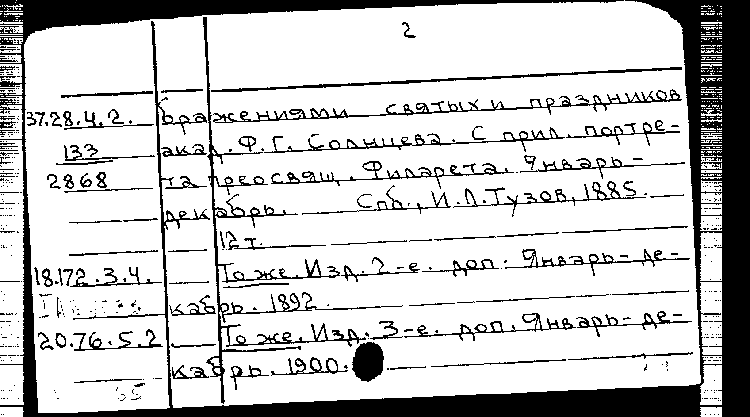 2
37.28.4.2. бражениями святых и праздников
133 акад. Ф.Г. Солнцева. С прил. портре-
2868 та преосвящ. Филарета. Январь-
декабрь. Спб., И.Л. Тузов, 1885.
12 т.
18.172.3.4. То же. Изд. 2-е. доп. Январь-де-
кабрь. 1892.
20.76.5.2 То же. Изд. 3-е. доп. Январь-де-
кабрь. 1900.